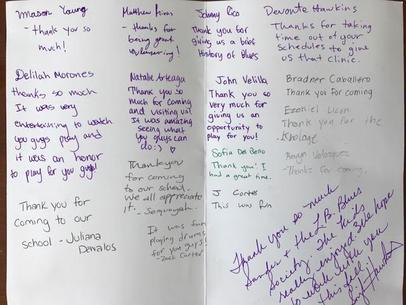 Mason Young
- thank you so
much!
Delilah Morones
thanks so much
It was very
entertaining to watch
you guys play and
it was an honor
to play for you guys!
Thank you for
coming to our
school - Juliana
Davalos
Matthew
- thanks for
being great
Natalie Arteaga
Thank you so
much for coming
and visiting us!
It was amazing
seeing what
you guys can
do :)
Thank you
for coming
to our school.
We all appreciate
it. - Sequoyah
It was fun
playing drums
for you guys!
- Zack Carter
Johnny Rico
Thank you for
giving us a brief
History of Blues
John Velilla
Thank you so
very much for
giving us an
opportunity to
play for you!
Sofia Del Beno
Thank you! I
had a great time.
J Cortes
This was fun
Devonte Hawkins
Thanks for taking
time out of your
Schedules to give
us that clinic.
Bradner Caballero
Thank you for coming
Ezekiel Leon
Thank you for the
Velazquez
Thanks for coming
Thank you so much
& the L.B. Blues
Society. The kids
really enjoyed. We hope
to work with you
this fall!